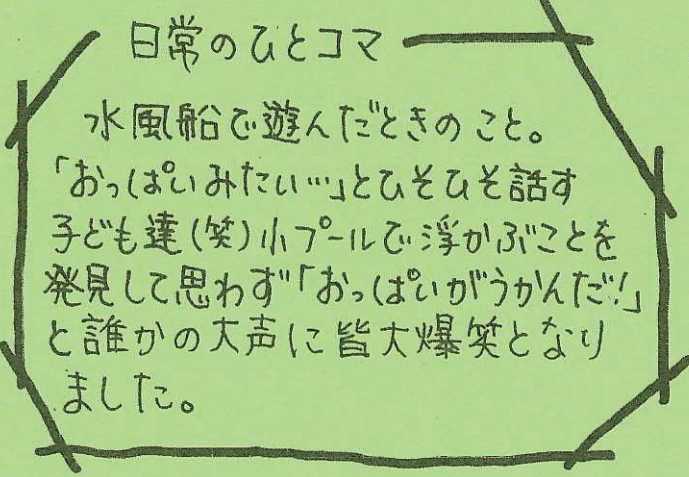 日常のひとコマ
水風船で遊んだときのこと。
「おっぱいみたい…」とひそひそ話す
子ども達(笑)小プールで浮かぶことを
発見して思わず「おっぱいがうかんだ!」
と誰かの大声に皆大爆笑となり
ました。